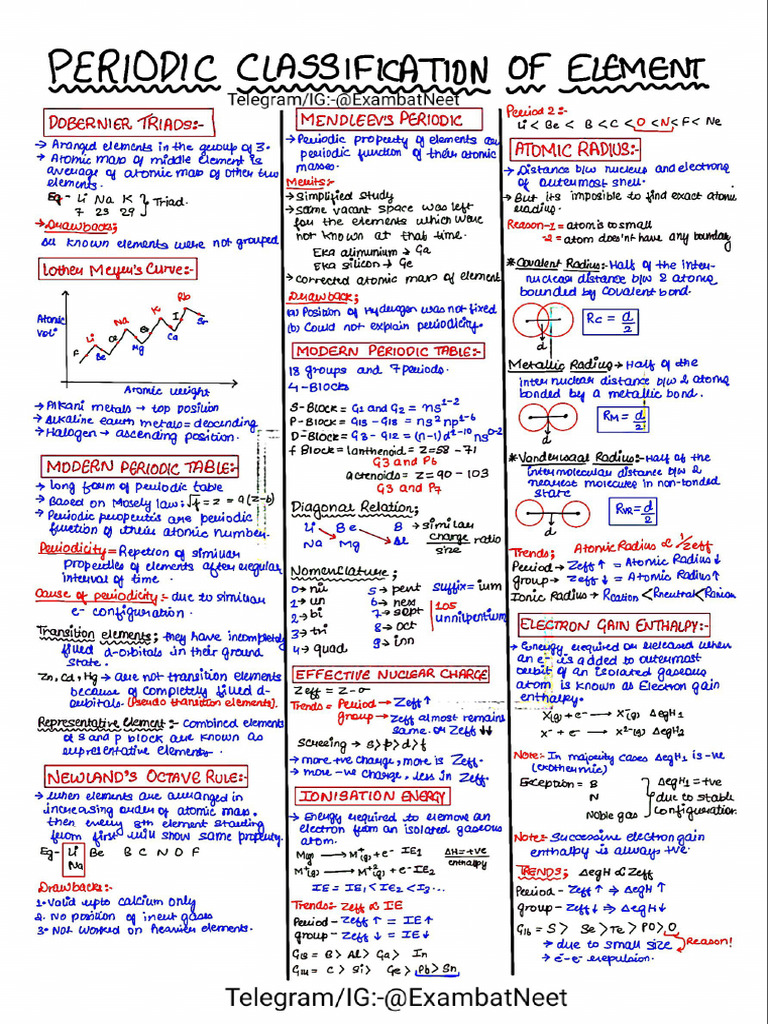 PERIODIC CLASSIFICATION OF ELEMENT
Telegram/IG:-@ExambatNeet
DOBERNIER TRIADS:-
→ Aranged elements in the group of 3.
→ Atomic mass of middle element is
average of atomic mass of other two
elements.
Eg- Li Na K } Triad.
7 23 29
→ Drawback;
All known elements were not grouped
Lother Meyer's Curve:-
Atomic
Vol
F Li Be Cl Na Mg Br K Ca I Rb Sr
Atomic weight
→ Alkani metals → top position
→ Alkaline earth metals = descending
→ Halogen → ascending position.
MODERN PERIODIC TABLE:-
→ long form of periodic table
→ Based on Mosely law: √f = z = a(z-b)
→ Periodic properties are periodic
function of their atomic number.
Periodicity = Repetion of similar
properties of elements after regular
interval of time.
Cause of periodicity:- due to similar
e- configuration.
Transition elements; they have incompletely
filled d-orbitals in their ground
state.
Zn, Cd, Hg → are not transition elements
because of completely filled d-
orbitals (Pseudo transition elements).
Representative element:- combined elements
of s and p block are known as
representative elements.
NEWLAND'S OCTAVE RULE:-
→ When elements are arranged in
increasing order of atomic mass.
then every 8th element starting
from first will show same property.
Eg- Li Be B C N O F
Na
Drawback:-
1. Valid upto calcium only
2. No position of inert gases
3. Not worked on heavier elements.
MENDLEEV'S PERIODIC
→ Periodic property of elements are
periodic function of their atomic
masses.
Merits:-
→ Simplified study
→ Some vacant space was left
for the elements which were
not known at that time.
Eka alimunium → Ga
Eka silicon → Ge
→ corrected atomic mass of element
Drawback;
(a) Position of Hydrogen was not fixed
(b) Could not explain periodicity.
MODERN PERIODIC TABLE:-
18 groups and 7 periods.
4-Blocks
S-Block = G1 and G2 = ns¹⁻²
P-Block = G13 - G18 = ns² np¹⁻⁶
D-Block = G3 - G12 = (n-1)d¹⁻¹⁰ ns⁰⁻²
f Block = lanthenoid = Z=58 - 71
G3 and P6
actenoids = Z = 90 - 103
G3 and P7
Diagonal Relation;
Li Be B → similar
Na Mg Al charge/size ratio
Nomenclature;
0 → nil 5 → pent suffix = ium
1 → un 6 → hex
2 → bi 7 → sept 105
3 → tri 8 → oct unnilpentium
4 → quad 9 → inn
EFFECTIVE NUCLEAR CHARGE
Zeff = Z - σ
Trends = Period → Zeff ↑
group → Zeff almost remains
same. or Zeff ↓↓
Screeing → s > p > d > f
→ more +ve charge, more is Zeff.
→ more -ve charge, less in Zeff.
IONISATION ENERGY
→ Energy required to remove an
electron from an isolated gaseous
atom.
M(g) → M⁺(g) + e- IE1 ΔH=+ve
M⁺(g) → M⁺²(g) + e- IE2 enthalpy
IE = IE1 < IE2 < I3...
Trends:- Zeff ∝ IE
Period - Zeff ↑ = IE ↑
group - Zeff ↓ = IE ↓
G13 = B > Al > Ga > In
G14 = C > Si > Ge > Pb > Sn
Period 2:-
Li < Be < B < C < O < N < F < Ne
ATOMIC RADIUS:-
→ Distance b/w nucleus and electrons
of outermost shell.
→ But its imposible to find exact atomic
radius.
Reason-1 = atom is to small
-2 = atom does'nt have any boundary
* Covalent Radius:- Half of the inter-
nuclear distance b/w 2 atoms
bounded by Covalent bond.
d
Rc = d/2
Metallic Radius → Half of the
inter nuclear distance b/w 2 atoms
bonded by a metallic bond.
d
RM = d/2
* Vanderwaal Radius:- Half of the
intermolecular distance b/w 2
nearest molecules in non-bonded
state
d
RVR = d/2
Trends; Atomic Radius ∝ 1/Zeff
Period → Zeff ↑ = Atomic Radius ↓
group → Zeff ↓ = Atomic Radius ↑
Ionic Radius → Rcation < Rneutral < Ranion
ELECTRON GAIN ENTHALPY:-
→ Energy required or released when
an e- is added to outermost
orbit of an isolated gaseous
atom is known as Electron gain
enthalpy.
X(g) + e- → X⁻(g) ΔegH1
X⁻ + e- → X²⁻(g) ΔegH2
Note:- In majority cases ΔegH1 is -ve
(exothermic)
Exception = B
N
Noble gas
} ΔegH1 = +ve
due to stable
configuration
Note:- Successive electron gain
enthalpy is always +ve.
TRENDS; ΔegH ∝ Zeff
Period - Zeff ↑ ⇒ ΔegH ↑
group- Zeff ↓ ⇒ ΔegH ↓
G16 = S > Se > Te > PO > O
→ due to small size
→ e-e- repulsion. Reason!
Telegram/IG:-@ExambatNeet